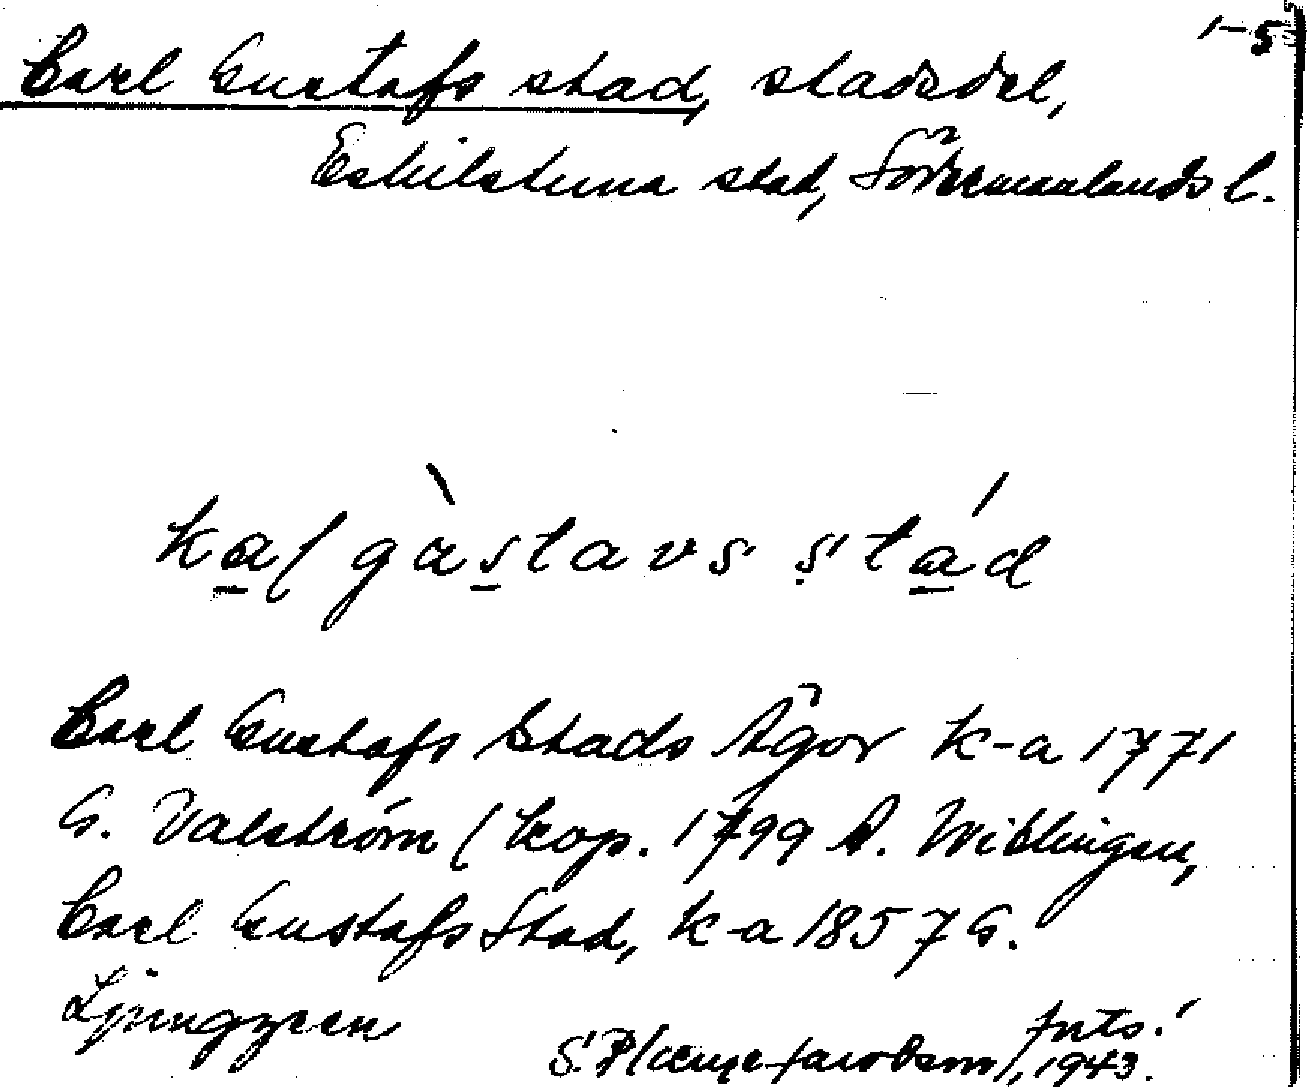 1-5
Carl Gustafs stad, stadsdel,
Eskilstuna stad, Södermanlands l.
kal gàstavs stád
Carl Gustafs Stads Ägor k-a 1771
G. Valström (kop. 1799 A. Wiblingen,
Carl Gustafs Stad, k-a 1857 G.
Ljunggren
forts.!
S. 1943.